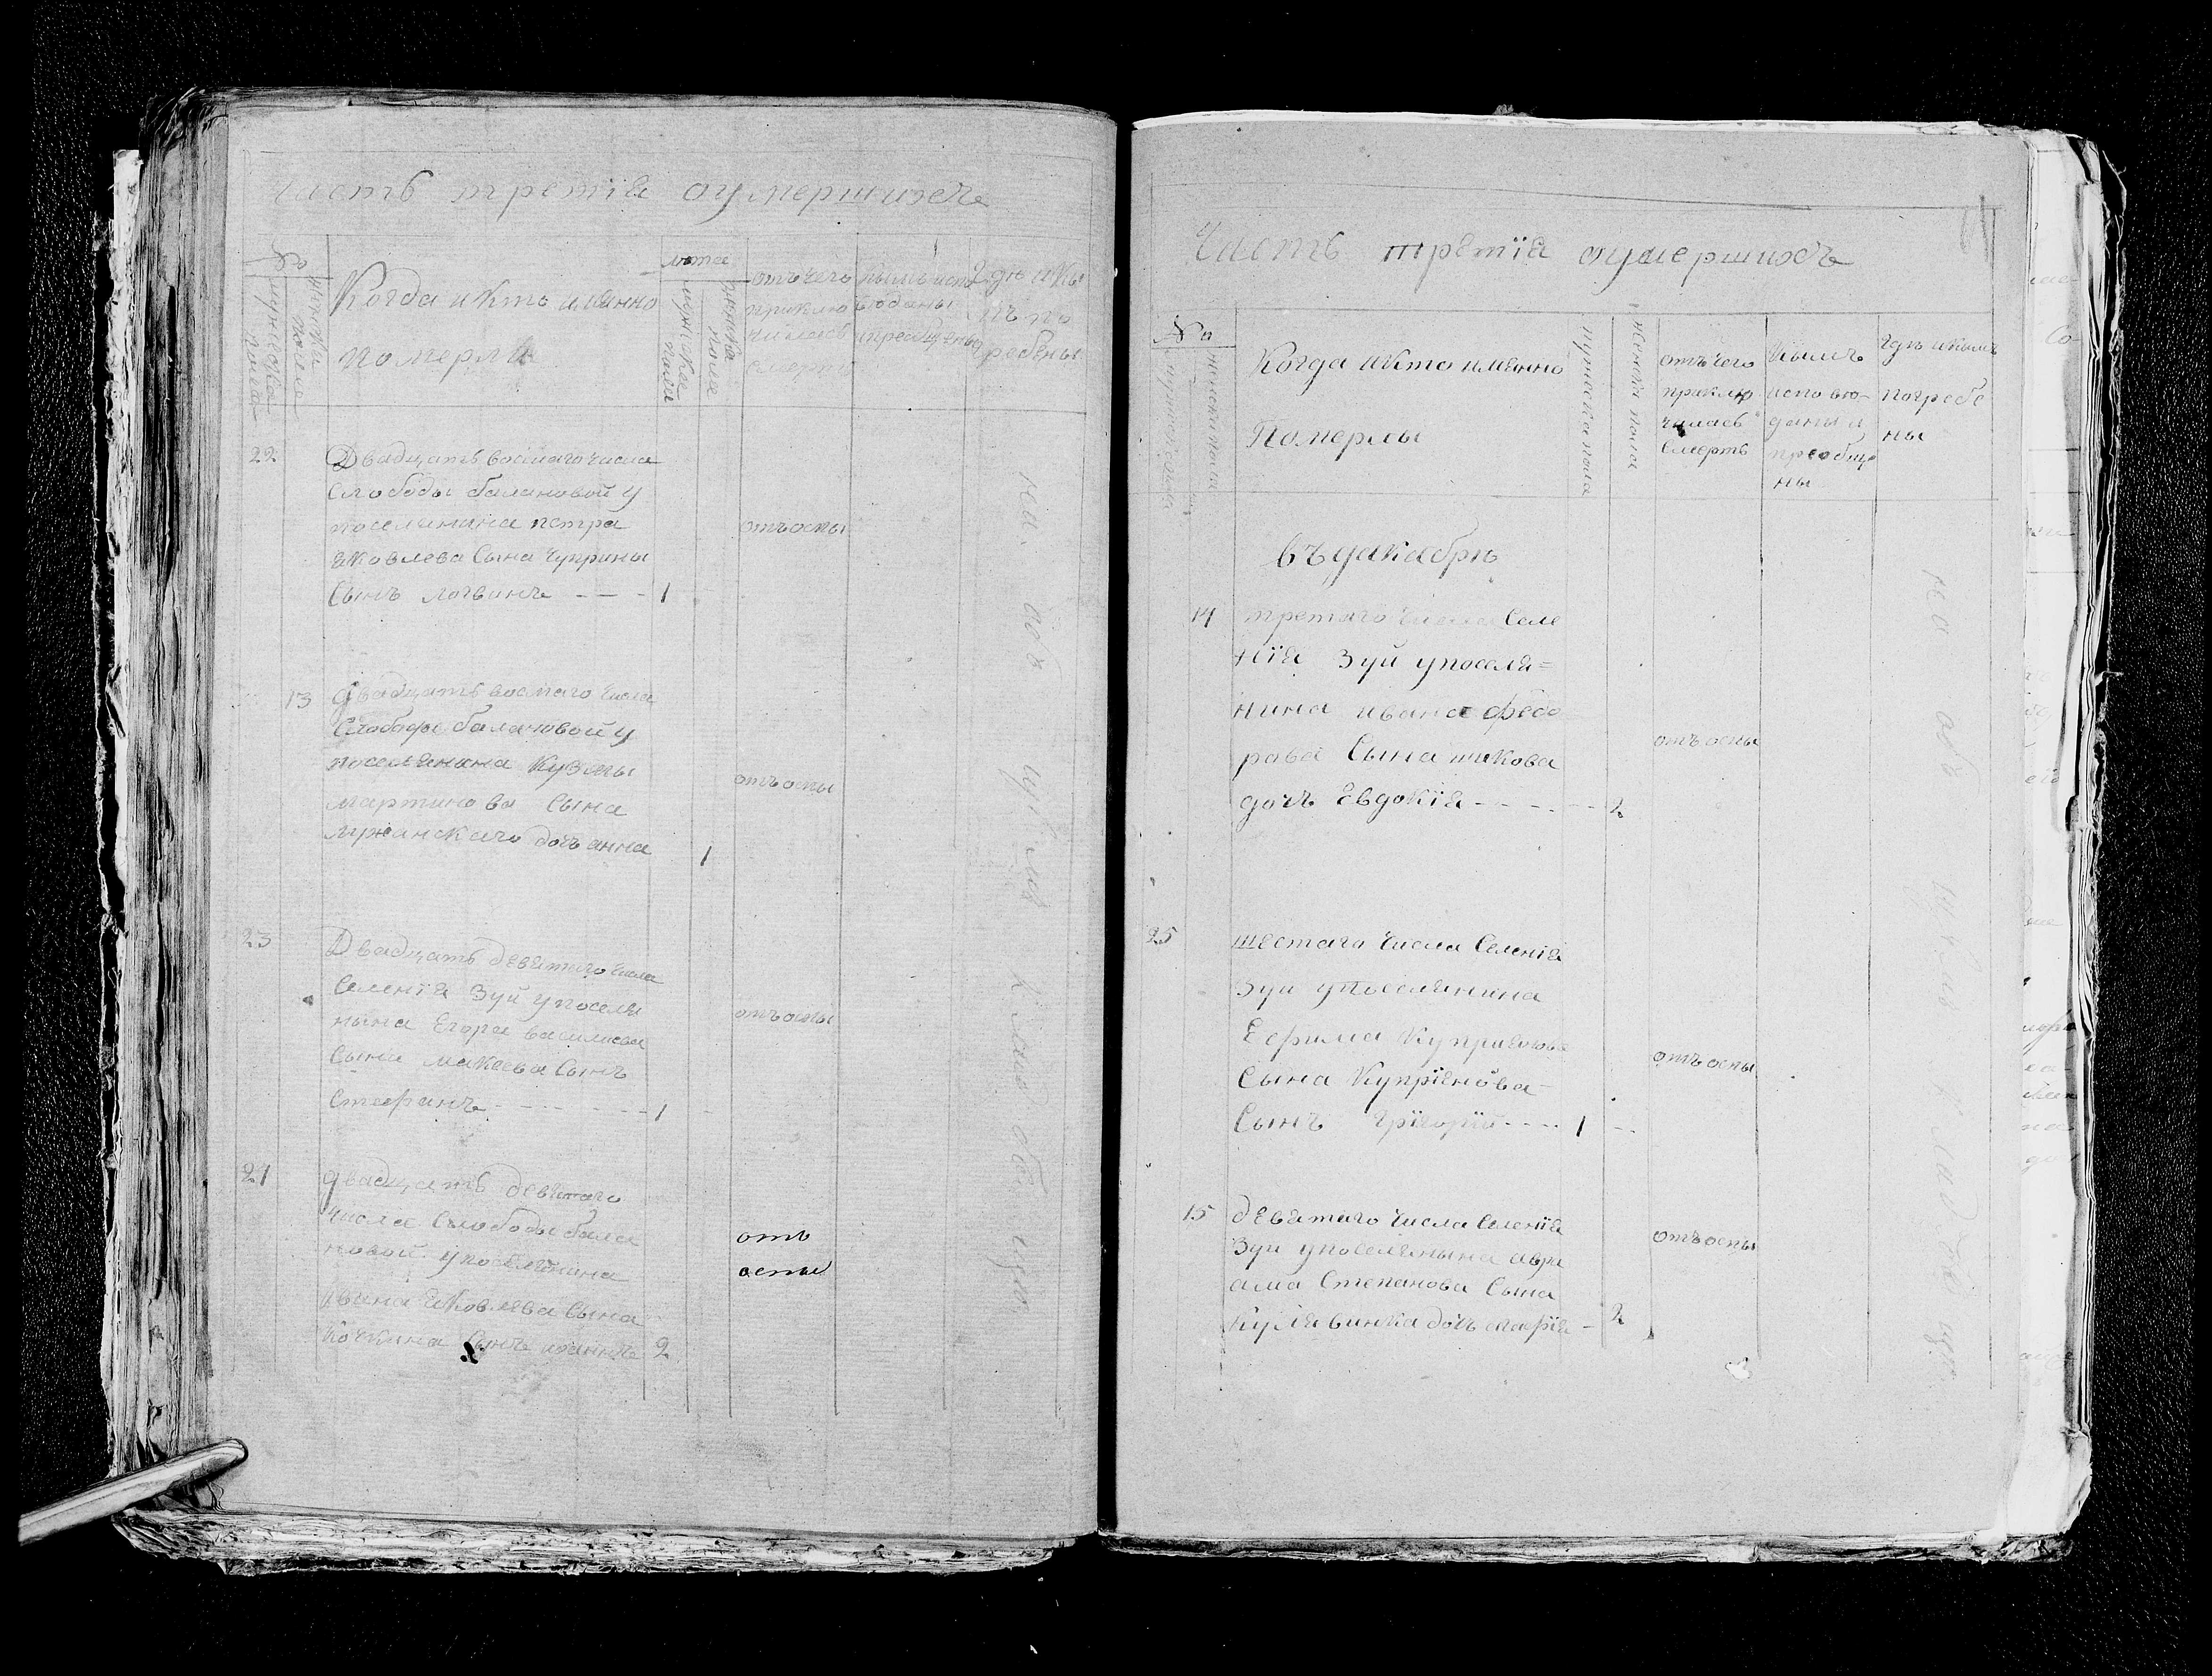 часть третія оумершихъ
№
мужеска пола
женска пола
Когда икто имянно
померли
лѣта
мужеска пола
женска пола
отъчего
приклю
чилась
смерть
кымъ испо
вюданы
ипреобщены
Гдѣ икы
мъ по
гребены
22
Двадцать восмаго числа
Слободы балановой у
поселянина петра
яковлева Сына Чуприны
Сынъ логвинъ - - - 1
отъоспы
13
двадцать восмаго числа
Слободы балановой у
поселянина Кузмы
мартинова Сына
дочъ анна
1
отъоспы
23
Двадцать девятаго числа
Селенія Зуй упоселя
нына Егора василиева
Сына макеева Сынъ
Стефанъ - - - - - 1
отъоспы
24
двадцать девятаго
числа Слободы бала
новой упоселянина
ивана яковлева Сына
кочкина Сынъ иоаннъ 2
отъ
оспы
на общемъ кладбищѣ
Часть третія оумершихъ
№
мужеска пола
женска пола
Когда икто имянно
Померлы
мужеска пола
женска пола
отъчего
приклю
чилась
Смерть
кымъ
исповю-
даны и
преобще
ны
Гдѣ икымъ
погребе
ны
въ декабрѣ
14
третаго числа Селе
нія Зуй упоселя=
нина ивана федо
рова Сына
дочъ Евдокія - - - - 2
отъ оспы
25
шестаго числа Селенія
Зуи упоселянина
Ефима Купріянова
Сына Купріянова-
Сынъ Грігорій - - - - 1
отъ оспы
15
девятаго числа Селенія
Зуи упоселянына авра
ама Степанова Сына
дочъ марія - 2
отъ оспы
на общемъ кладбищѣ